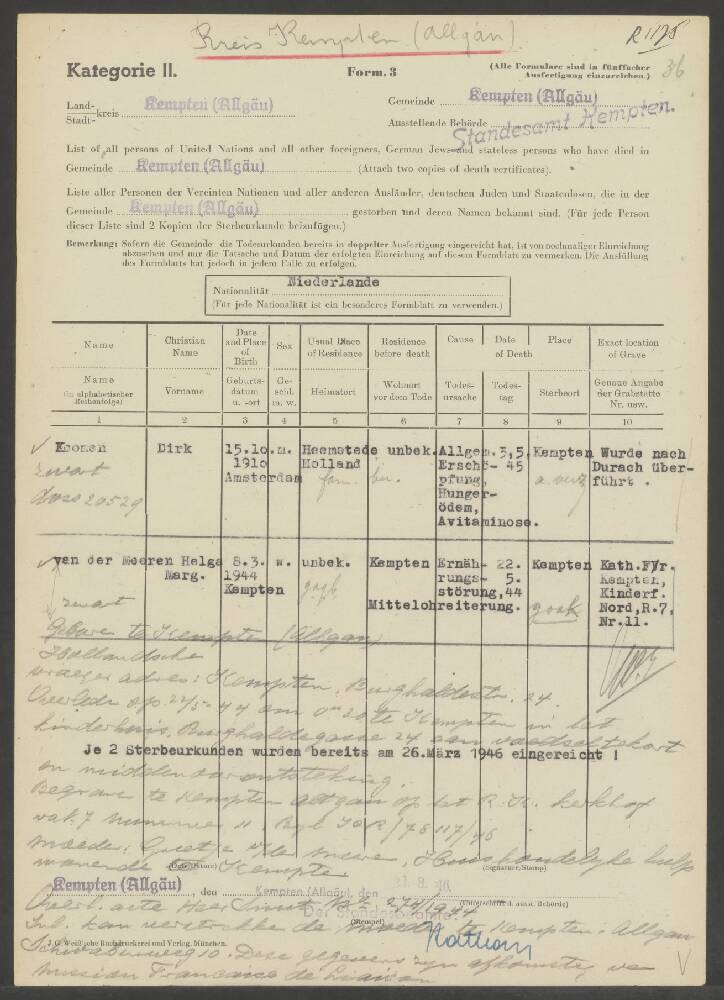 Kreis Kempten (Allgäu)
R 1175
36
Kategorie II.
Form. 3
(Alle Formulare sind in fünffacher
Ausfertigung einzureichen.)
Land-
Stadt- kreis Kempten (Allgäu)
Gemeinde Kempten (Allgäu)
Ausstellende Behörde Standesamt Kempten.
List of all persons of United Nations and all other foreigners, German Jews and stateless persons who have died in
Gemeinde Kempten (Allgäu) (Attach two copies of death certificates).
Liste aller Personen der Vereinten Nationen und aller anderen Ausländer, deutschen Juden und Staatenlosen, die in der
Gemeinde Kempten (Allgäu) gestorben und deren Namen bekannt sind. (Für jede Person
dieser Liste sind 2 Kopien der Sterbeurkunde beizufügen.)
Bemerkung: Sofern die Gemeinde die Todesurkunden bereits in doppelter Ausfertigung eingereicht hat, ist von nochmaliger Einreichung
abzusehen und nur die Tatsache und Datum der erfolgten Einreichung auf diesem Formblatt zu vermerken. Die Ausfüllung
des Formblatts hat jedoch in jedem Falle zu erfolgen.
Nationalität Niederlande
(Für jede Nationalität ist ein besonderes Formblatt zu verwenden.)
Name Christian Name Date and Place of Birth Sex Usual Place of Residence Residence before death Cause Date of Death Place Exact location of Grave
Name (in alphabetischer Reihenfolge) Vorname Geburts-datum u. -ort Ge-schl. m. w. Heimatort Wohnort vor dem Tode Todes-ursache Todes-tag Sterbeort Genaue Angabe der Grabstätte Nr. usw.
1 2 3 4 5 6 7 8 9 10
Kroonen Dirk 15.10. m. Heemstede unbek. Allgem. 3,5, Kempten Wurde nach
zwart 1910 Holland Erschö- 45 Durach über-
doss 20529 Amsterdam pfung, führt .
Hunger-
ödem,
Avitaminose.
van der Meeren Helga 8.3. w. unbek. Kempten Ernäh- 22. Kempten Kath.Fr.
Marg. 1944 rungs- 5. Kempten,
Kempten störung, 44 Kinderf.
zwart Mittelohreiterung. Nord,R.7,
Nr.11.
Geboren te Kempten (Allgau)
Hollandsche
vroeger adres: Kempten, Burghaldestr. 24.
Overleden op 22/5-44 om te Kempten in het
kinderhuis, Burghaldegasse 24 aan voedseltekort
Je 2 Sterbeurkunden wurden bereits am 26.März 1946 eingereicht !
en middenoorontsteking
Begraven te Kempten Allgau op het R. K. kerkhof
vak 7 nummer 11.
moeder: Meeren, Huishoudelijke hulp
wonende Kempten
(Signature/Stamp)
Kempten (Allgäu), den Kempten (Allgäu), den
Der Standesbeamte
(Stempel)
Overl. acte
te Kempten-Allgau
J. G. Weiß'sche Buchdruckerei und Verlag, München.
10. Deze gegevens zijn afkomstig van
mission Francaise de Liaison